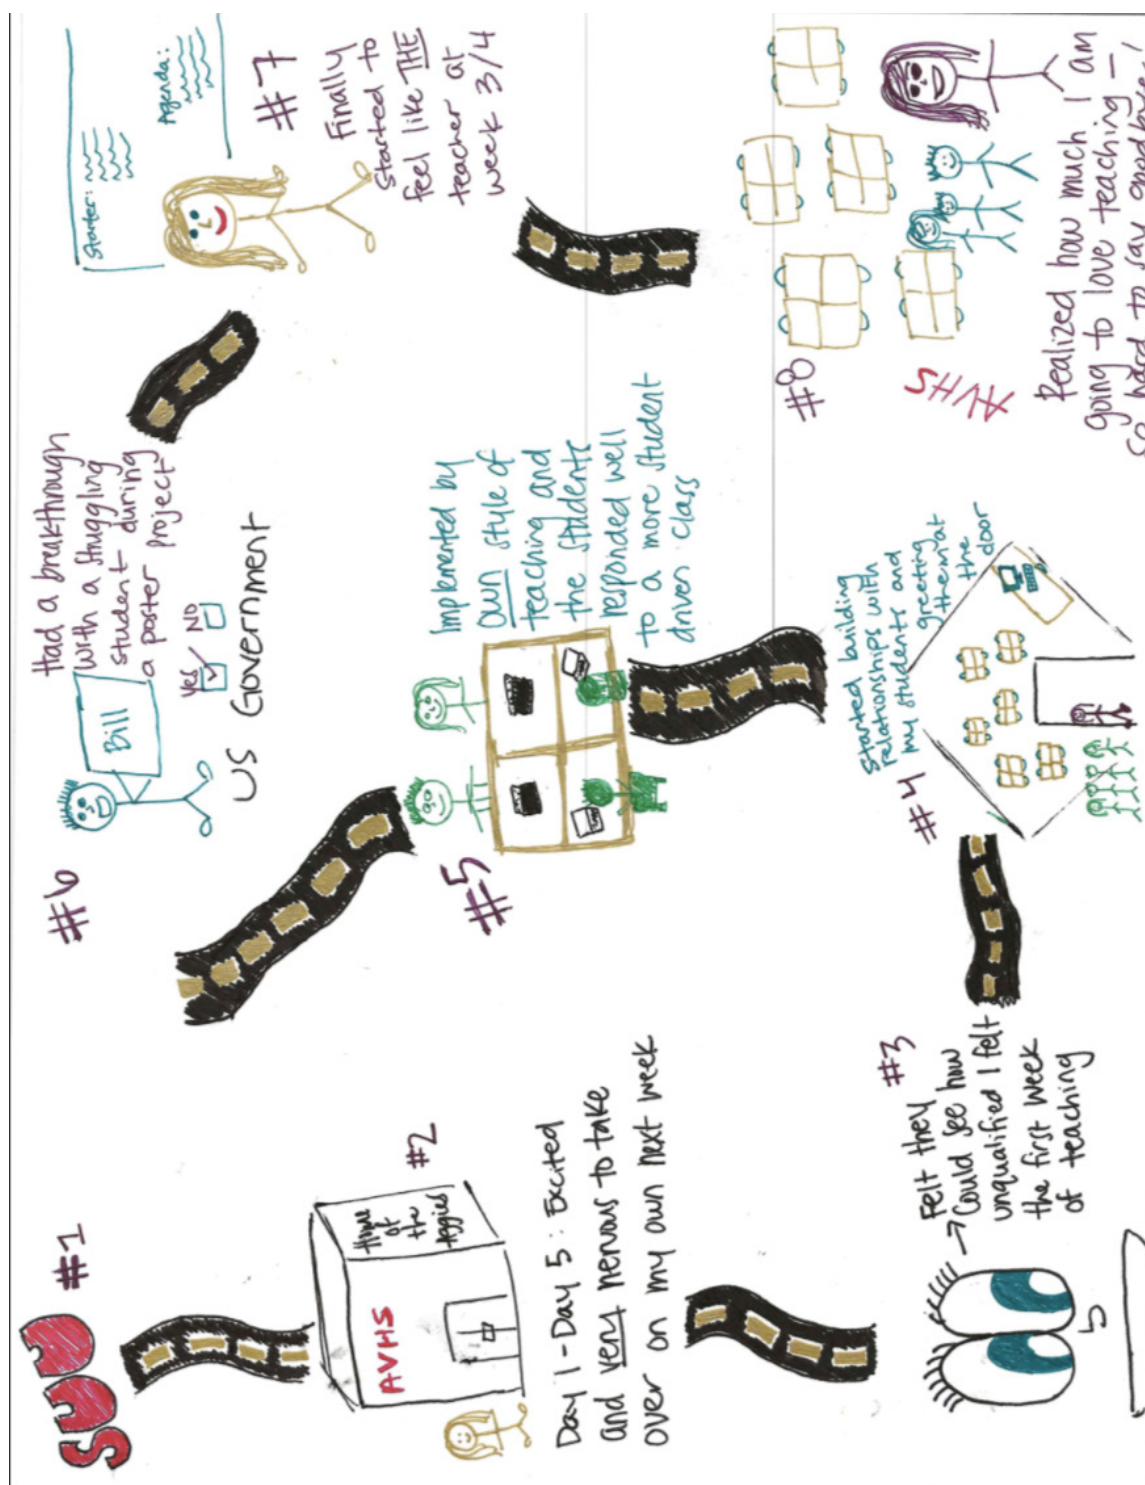 SUU
#1
AVHS
Home
of
the
Aggies
#2
Day 1 - Day 5 : Excited
and very nervous to take
over on my own next week
#3
Felt they
→ Could see how
unqualified I felt
the first week
of teaching
#4
Started building
relationships with
my students and
greeting
them at
the
door
#5
Implemented by
own style of
teaching and
the students
responded well
to a more student
driven class
#6
Had a breakthrough
with a stuggling
student during
a poster project
Bill
Yes NO
US Government
#7
Starter:
Agenda:
Finally
started to
feel like THE
teacher at
week 3/4
#8
AVHS
Realized how much I am
going to love teaching —
so hard to say goodbyes!